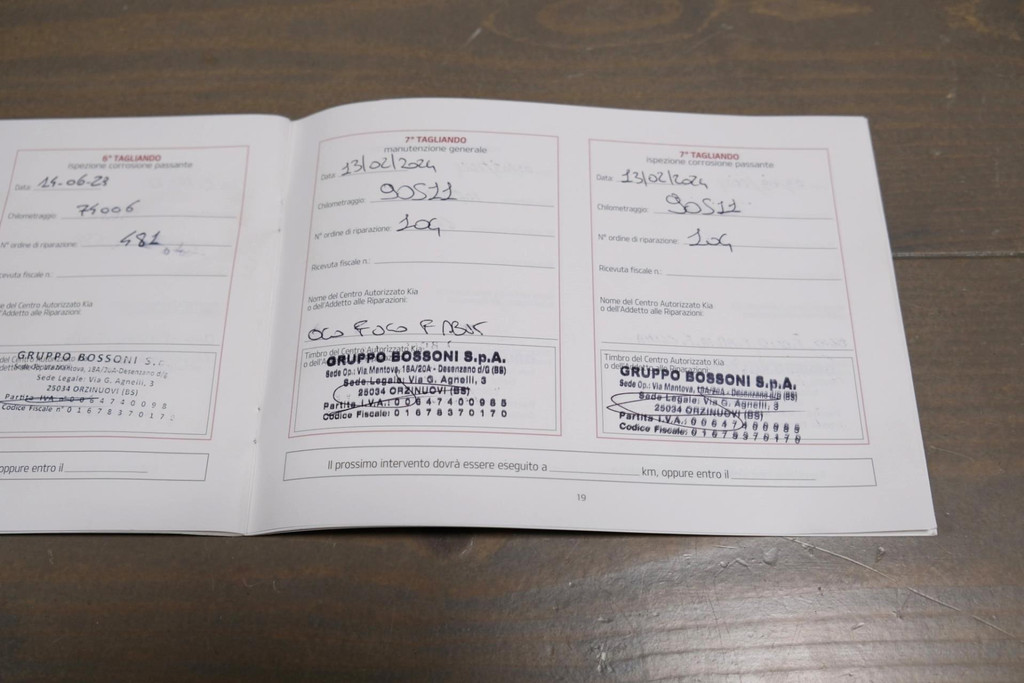 6° TAGLIANDO
ispezione corrosione passante
Data:
Chilometraggio: 74006
N° ordine di riparazione: 481
cevuta fiscale n.:
me del Centro Autorizzato Kia
o dell'Addetto alle Riparazioni:
GRUPPO BOSSONI S.
Sede Legale: Via G. Agnelli, 3
25034 ORZINUOVI (BS)
Partita IVA n° 0 0 6 4 7 4 0 0 9 8
Codice Fiscale n° 0 1 6 7 8 3 7 0 1 7
oppure entro il
7° TAGLIANDO
manutenzione generale
Data: 13/02/2024
Chilometraggio: 90511
N° ordine di riparazione: 104
Ricevuta fiscale n.:
Nome del Centro Autorizzato Kia
o dell'Addetto alle Riparazioni:
Timbro del Centro Autorizzato Kia
GRUPPO BOSSONI S.p.A.
Sede Op.: Via Mantova, 18A/20A - Desenzano d/G (BS)
Sede Legale: Via G. Agnelli, 3
25034 ORZINUOVI (BS)
Partita I.V.A.: 0 0 6 4 7 4 0 0 9 8 5
Codice Fiscale: 0 1 6 7 8 3 7 0 1 7 0
7° TAGLIANDO
ispezione corrosione passante
Data: 13/02/2024
Chilometraggio: 90511
N° ordine di riparazione: 104
Ricevuta fiscale n.:
Nome del Centro Autorizzato Kia
o dell'Addetto alle Riparazioni:
Timbro del Centro Autorizzato Kia
GRUPPO BOSSONI S.p.A.
Sede Op.: Via Mantova, 18A/20A - Desenzano d/G (BS)
Sede Legale: Via G. Agnelli, 3
25034 ORZINUOVI (BS)
Partita I.V.A.: 0 0 6 4 7 4 0 0 9 8 5
Codice Fiscale: 0 1 6 7 8 3 7 0 1 7 0
Il prossimo intervento dovrà essere eseguito a km, oppure entro il
19